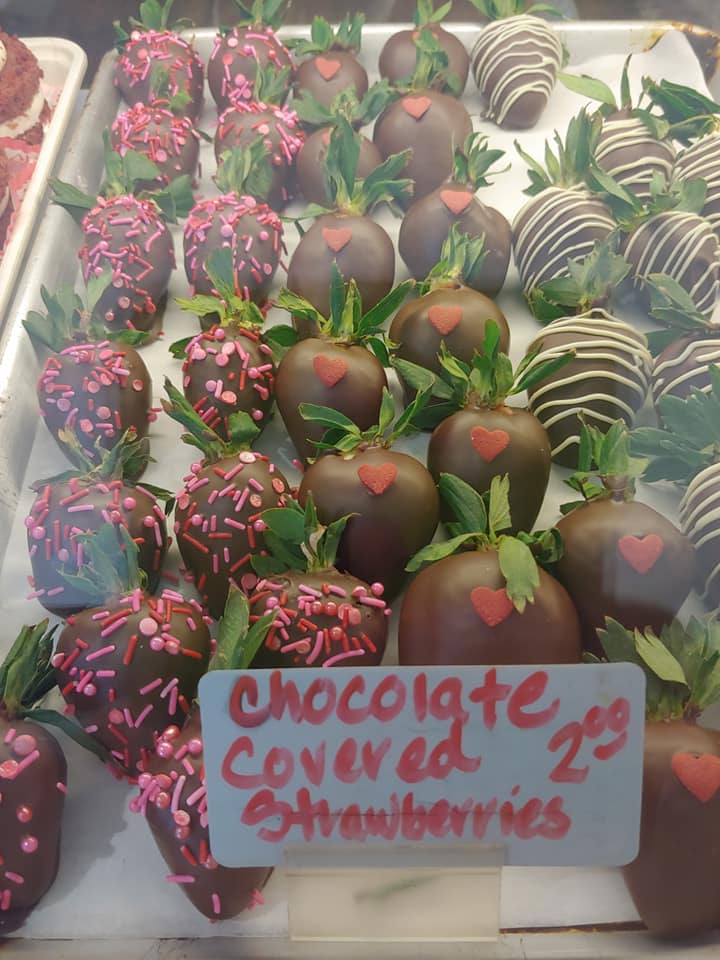 Chocolate
Covered 2.00
Strawberries